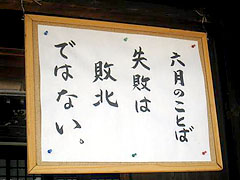 六月のことば
失敗は
敗北
ではない。